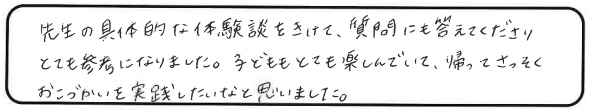 先生の具体的な体験談をきけて、質問にも答えてくださり
とても参考になりました。子どももとても楽しんでいて、帰ってさっそく
おこづかいを実践したいなと思いました。